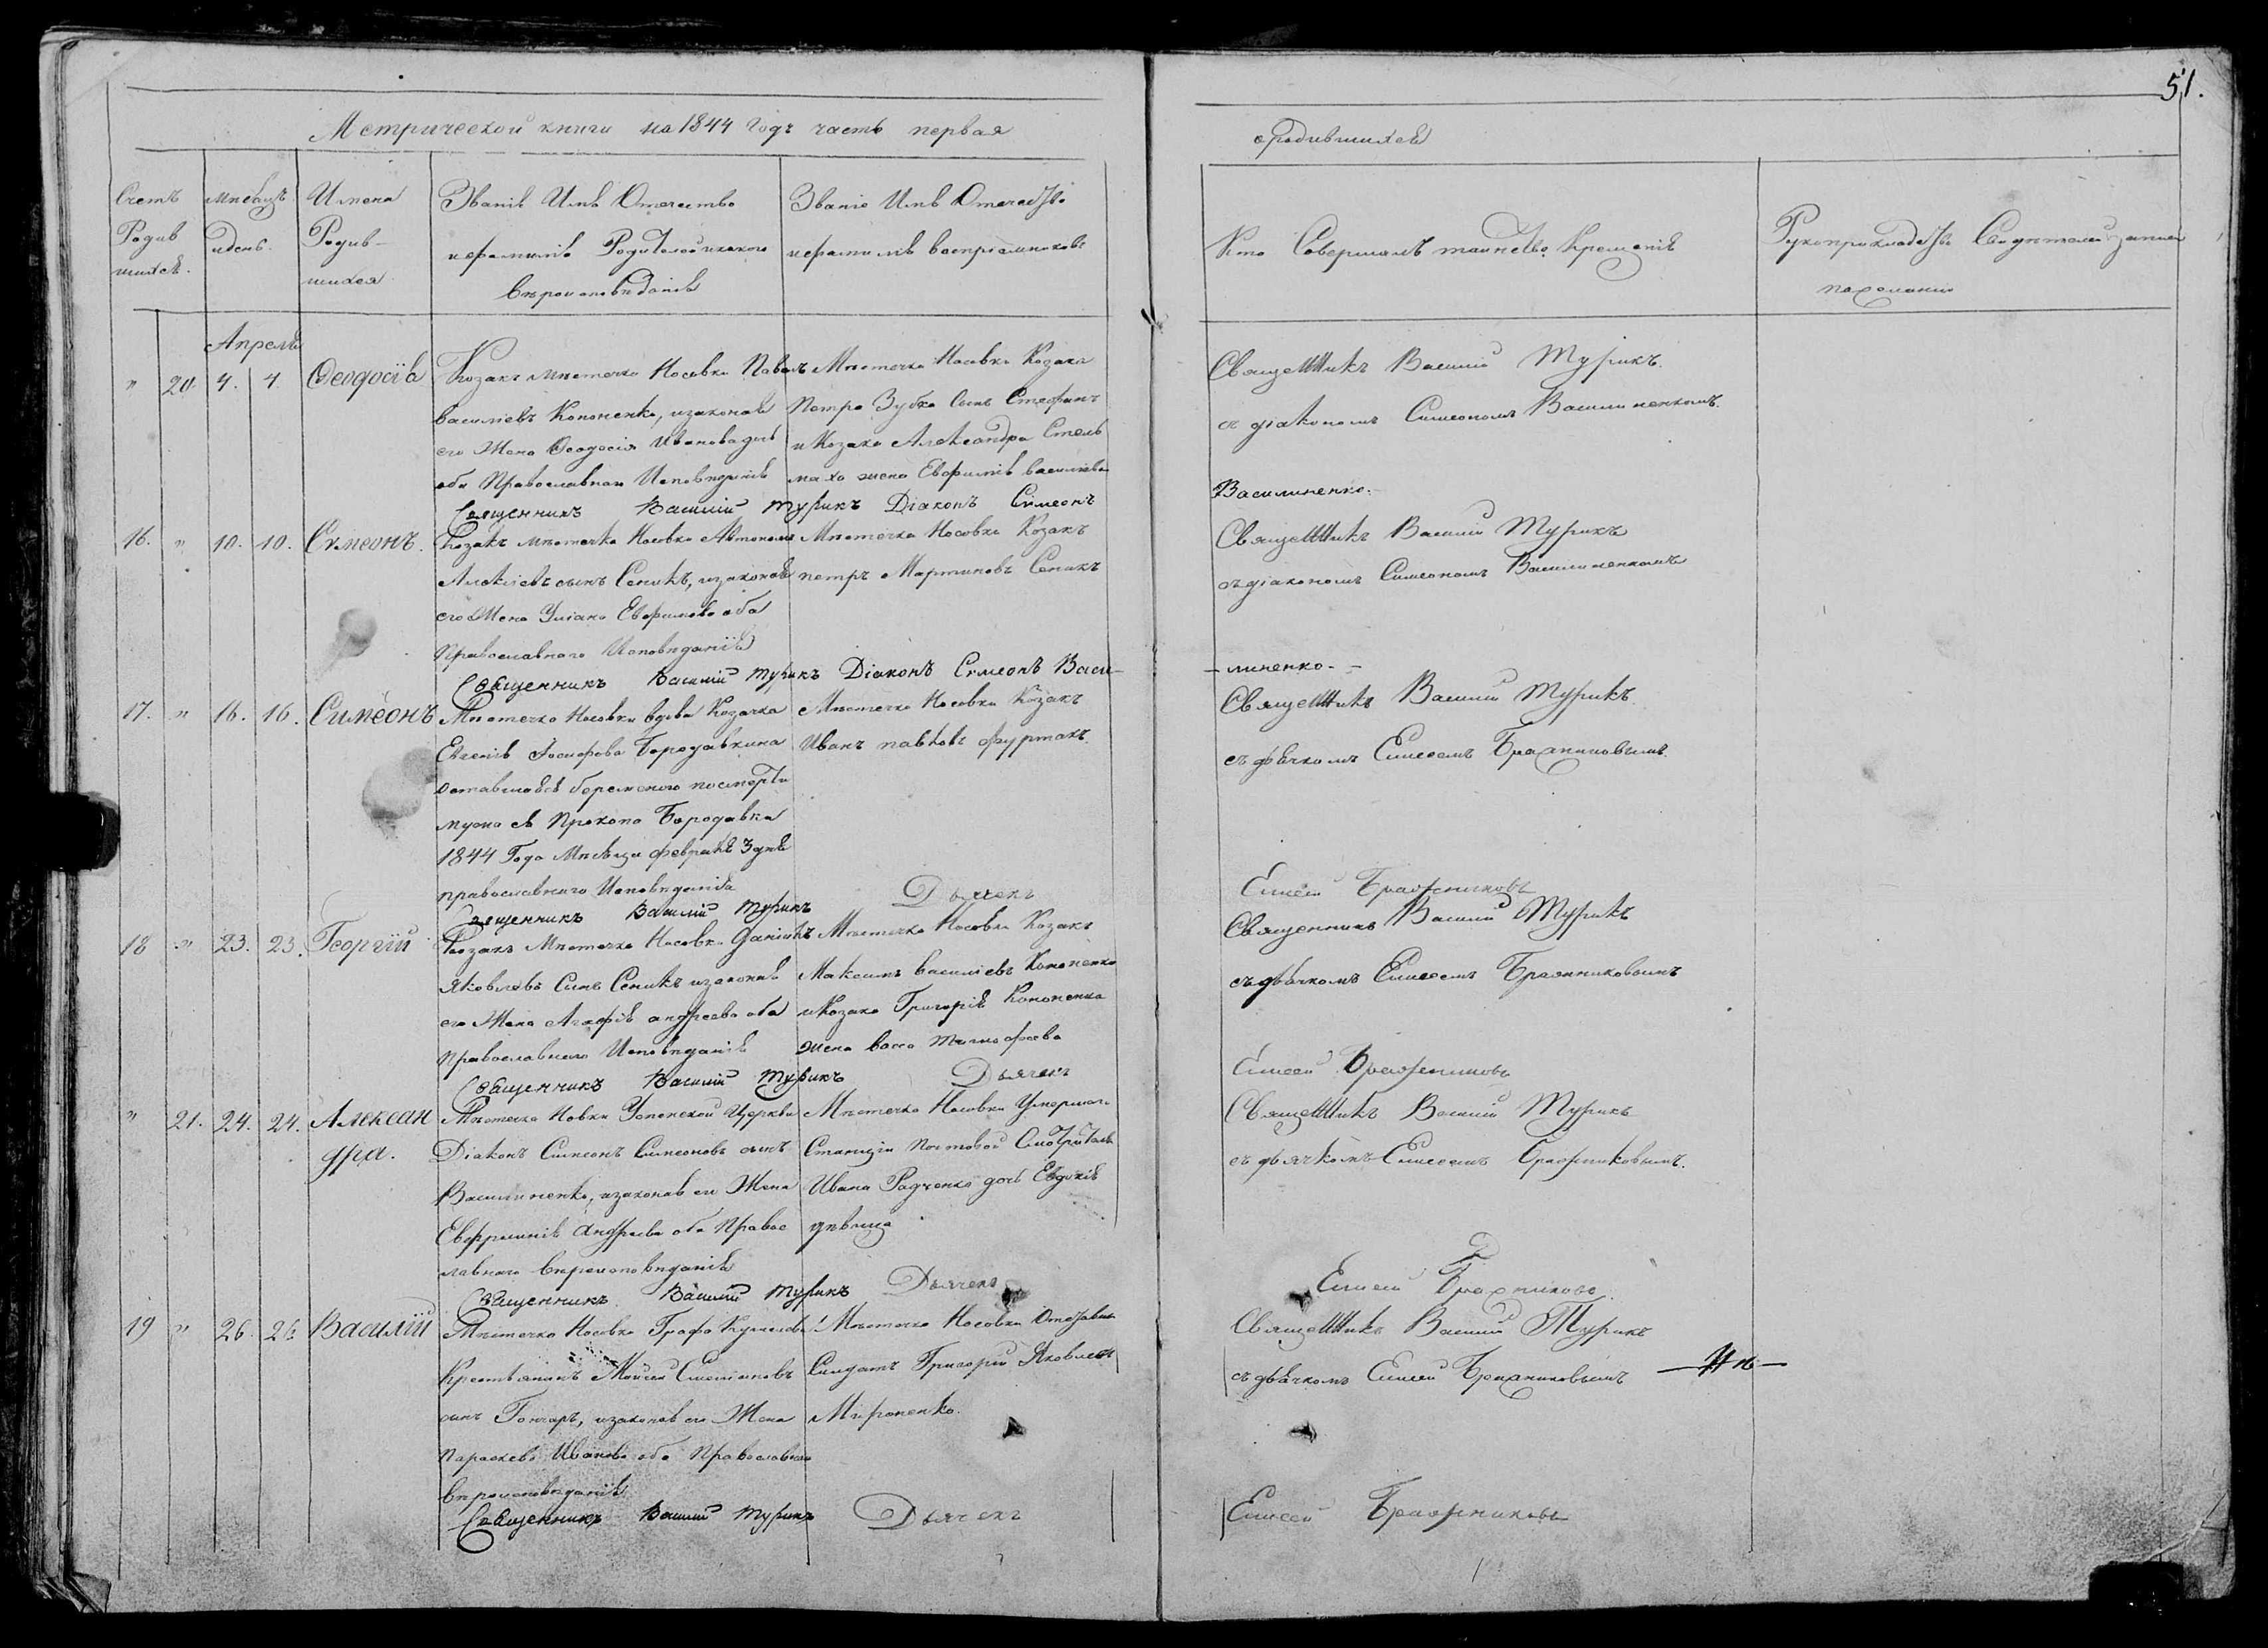 51.
Метрической книги на 1844 Годъ часть первая
о родившихся
Счетъ Родив шихся.
Мѣсяцъ и день.
Имена Родив- шихся
Званіе Имя Отечество
и фамилія Родителей и какого
вѣроисповѣданія
Званіе Имя Отечество
и фамилія воспріемниковъ
Кто Совершалъ таинство Крещенія
Рукоприкладство Свидѣтелей записи
по желанію
Апрель
" 20. 4. 4. Ѳеодосія
Козакъ мѣстечка Носовки Павелъ
василіевъ Кононенко, и законная
его Жена Ѳеодосія Иванова
оба Православнаго Исповѣданія
Мѣстечка Носовки Козака
Петра Зубка Сынъ Стефанъ
и Козака Александра Стель
маха жена Евфимія василіева
Священникъ Василій Турикъ
съ діакономъ Симеономъ Василиненкомъ.
Священникъ Василій Турикъ Діаконъ Симеонъ
Василиненко.
16. " 10. 10. Симеонъ.
Козакъ мѣстечка Носовки Автономъ
Алексіевъ сынъ Сепикъ, и законная
его Жена Уліана Евфимова оба
Православнаго Исповѣданія
Мѣстечка Носовки Козакъ
петръ Мартиновъ Сепикъ
Священникъ Василій Турикъ
съ діакономъ Симеономъ Василиненкомъ
Священникъ Василій Турикъ Діаконъ Симеонъ Васи-
-линенко.-
17. " 16. 16. Симеонъ
Мѣстечка Носовки вдова Козачка
Евгенія Іосифова Бородавкина
оставшаяся беременною по смерти
мужа ея Прокопа Бородавки
1844 Года Мѣсяца февраля 3 дня
православнаго Исповѣданія
Мѣстечка Носовки Козакъ
Иванъ павловъ фуртакъ.
Священникъ Василій Турикъ
съ дьячкомъ Елисеемъ Бражниковымъ.
Священникъ Василій Турикъ Дьячекъ
Елисей Бражниковъ
18 " 23. 23. Георгій
Козакъ Мѣстечка Носовки Даніилъ
Яковлевъ Сынъ Сепикъ и законная
его Жена Агафія андреева оба
Православнаго Исповѣданія
Мѣстечка Носовки Козакъ
Максимъ василіевъ Кононенко
и Козака Григорія Кононенка
жена васса тимофеева
Священникъ Василій Турикъ
съ дьячкомъ Елисеемъ Бражниковымъ
Священникъ Василій Турикъ Дьячекъ
Елисей Бражниковъ
" 21. 24. 24. Алексан
дра.
Мѣстечка Новки Успенской Церкви
Діаконъ Симеонъ Симеоновъ сынъ
Василиненко, и законная его Жена
Евфросинія Андреева оба Правос
лавнаго вѣроисповѣданія
Мѣстечка Носовки Умершаго
Станціи Почтовой Смотрителя
Ивана Радченка дочь Евдокія
дѣвица
Священникъ Василій Турикъ
съ дьячкомъ Елисеемъ Бражниковымъ.
Священникъ Василій Турикъ Дьячекъ
Елисей Бражниковъ.
19 " 26. 26 Василій
Мѣстечка Носовки Графа Кушелева
Крестьянинъ Мойсей
сынъ Гончаръ, и законная его Жена
Параскева Иванова оба Православнаго
вѣроисповѣданія
Мѣстечка Носовки Отставный
Солдатъ Григорій Яковлевъ
Мироненко.
Священникъ Василій Турикъ
съ дьячкомъ Елисей Бражниковымъ
Священникъ Василій Турикъ Дьячекъ
Елисей Бражниковъ